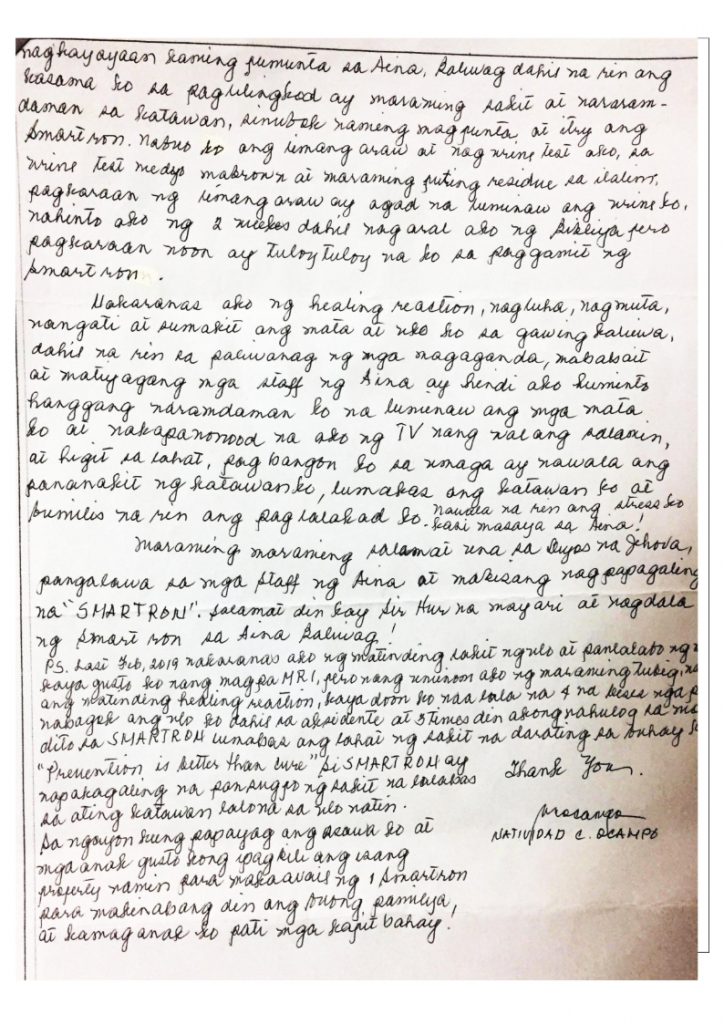 naghayayaan kaming pumunta sa Aina, Baliwag dahil na rin ang
kasama ko sa paglilingkod ay maraming sakit at nararam-
daman sa katawan, sinubok naming magpunta at itry ang
Smartron. Nabuo ko ang limang araw at nag urine test ako, sa
urine test medyo mabrown at maraming puting residue sa ilalim,
pagkaraan ng limang araw ay agad na luminaw ang urine ko,
nahinto ako ng 2 weeks dahil nagaral ako ng Bibliya pero
pagkaraan noon ay tuloy tuloy na ko sa paggamit ng
Smartron.
Nakaranas ako ng healing reaction, nagluha, nagmuta,
nangati at sumakit ang mata at ulo ko sa gawing kaliwa,
dahil na rin sa paliwanag ng mga magaganda, mababait
at matiyagang mga staff ng Aina ay hindi ako huminto
hanggang naramdaman ko na luminaw ang mga mata
ko at nakapanonood na ako ng TV nang walang salamin,
at higit sa lahat, pag bangon ko sa umaga ay nawala ang
pananakit ng katawan ko, lumakas ang katawan ko at
bumilis na rin ang paglalakad ko. Nawala na rin ang stress ko
kasi masaya sa Aina!
Maraming maraming salamat una sa Diyos na Jehova,
pangalawa sa mga Staff ng Aina at makisang nagpapagaling
na "SMARTRON". Salamat din kay Sir Hur na mayari at nagdala
ng Smartron sa Aina Baliwag!
PS. Last Feb, 2019 nakaranas ako ng matinding sakit ng ulo at panlalabo ng
kaya gusto ko nang magpa MRI, pero nang uminom ako ng maraming tubig,
ang matinding healing reaction, kaya doon ko naalala na 4 na beses nga
nabagok ang ulo ko dahil sa aksidente at 3 times din akong nahulog sa
dito sa SMARTRON lumabas ang lahat ng sakit na darating sa buhay
"Prevention is better than cure" si SMARTRON ay
napakagaling na pansugpo ng sakit na lalabas
sa ating katawan lalo na sa ulo natin.
Sa ngayon kung papayag ang asawa ko at
mga anak gusto kong ipagbili ang isang
property namin para makaavail ng 1 Smartron
para makinabang din ang buong pamilya,
at kamag anak ko pati mga kapit bahay!
Thank You.
NATIVIDAD C. OCAMPO